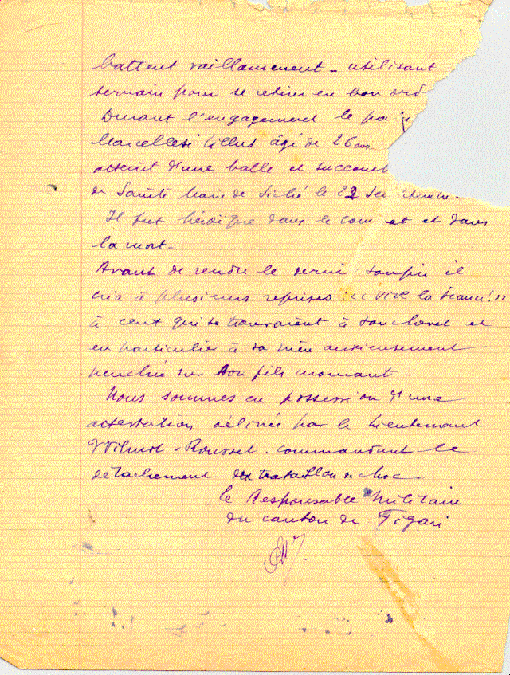 battent vaillamment - utilisant
terrain pour se retirer en bon ord
Durant l'engagement le pa
Marcellesi âgé de 26 ans
atteint d'une balle et succomb
de Sainte Marie de Siché le 22 Septembre.
Il fut héroïque dans le com et et dans
la mort.
Avant de rendre le dernier soupir il
cria à plusieurs reprises "Vive la France!"
à ceux qui se trouvaient à son chevet et
en particulier à sa mère anxieusement
penchée sur son fils mourant
Nous sommes en possession d'une
attestation délivrée par le Lieutenant
Rousset. commandant le
détachement du bataillon de choc.
Le Responsable Militaire
du canton de Figari